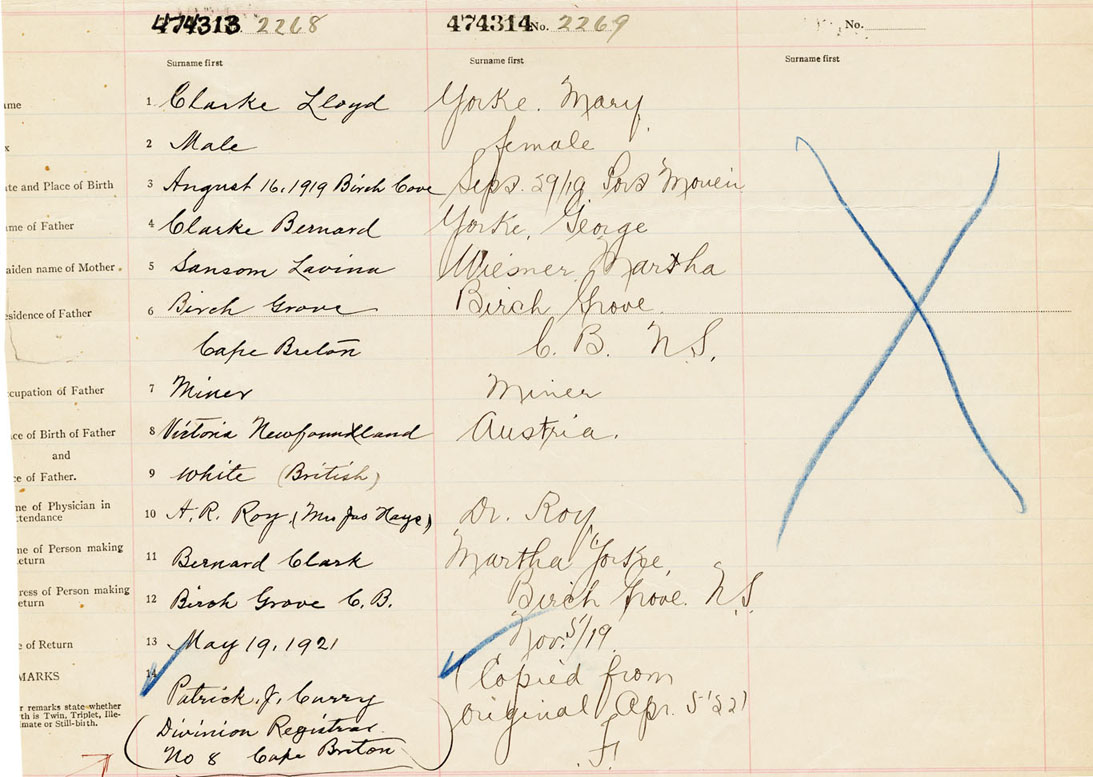 474313 2268 474314 No. 2269 No.
Surname first Surname first Surname first
ame 1 Clarke Lloyd Yorke. Mary
x 2 Male female
ate and Place of Birth 3 August 16, 1919 Birch Cove Sept. 29/19 Port Morien
ame of Father 4 Clarke Bernard Yorke, George
aiden name of Mother 5 Sansom Lavina Wiesner, Martha
esidence of Father 6 Birch Grove Birch Grove.
Cape Breton C. B. N.S.
ccupation of Father 7 Miner Miner
ace of Birth of Father 8 Victoria Newfoundland Austria.
and
ce of Father. 9 White (British)
me of Physician in
ttendance 10 A. R. Roy (Mrs Jas Hays) Dr. Roy
me of Person making
eturn 11 Bernard Clark Martha Yorke,
ress of Person making
eturn 12 Birch Grove C.B. Birch Grove. N.S.
e of Return 13 May 19, 1921 Nov. 5/19
MARKS 14 Patrick. J. Curry (Copied from
r remarks state whether
th is Twin, Triplet, Ille-
imate or Still-birth.
(Division Registrar original Apr. 5'22)
No 8 Cape Breton) F.